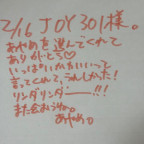 2/16 JOY301様。
あやめを選んでくれて
ありがとう♡
いっぱいかわいいって
言ってくれて、うれしかった!
リンダリンダーー!!!
また会おうねっ。
あやめ。